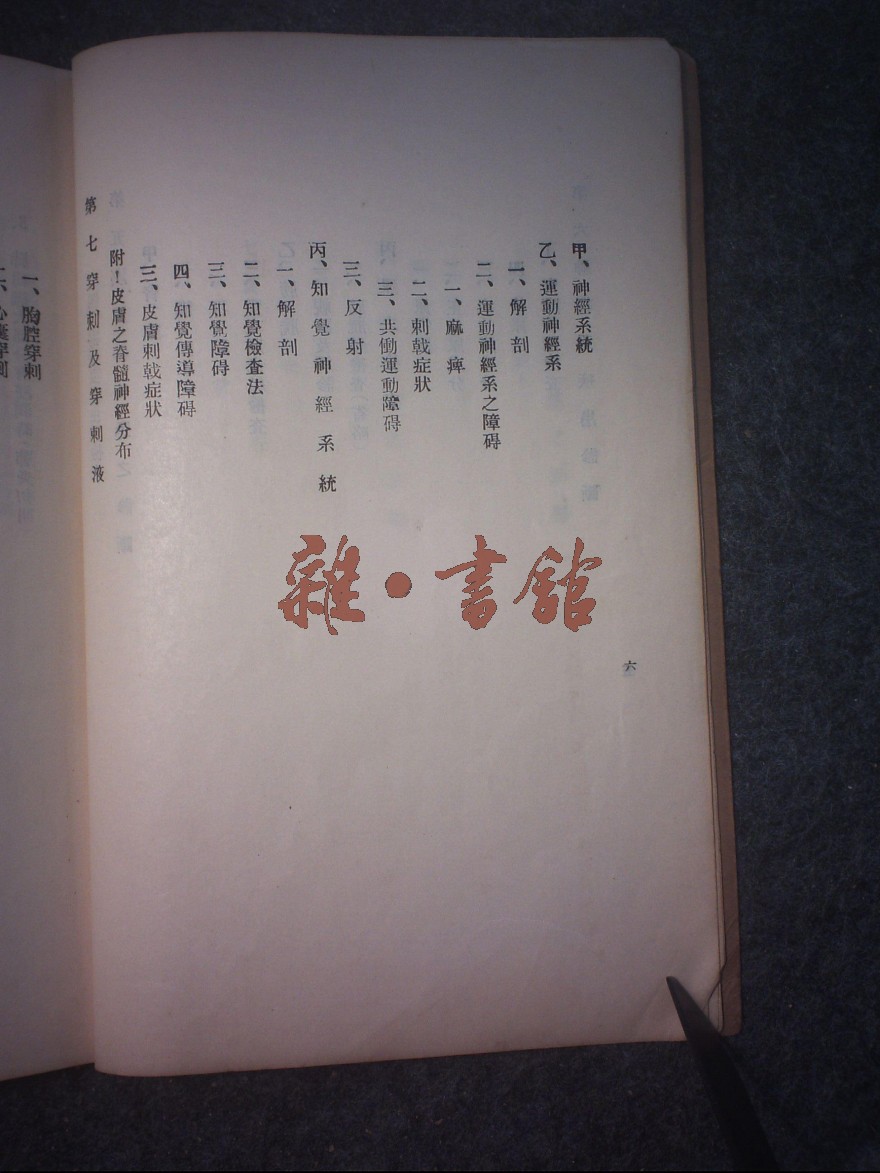 甲、神經系統
乙、運動神經系
一、解剖
二、運動神經系之障碍
一、麻痺
二、刺戟症狀
三、共働運動障碍
三、反射
丙、知覺神經系統
一、解剖
二、知覺檢查法
三、知覺障碍
四、知覺傳導障碍
三、皮膚刺戟症狀
附！皮膚之脊髓神經分布
第七穿刺及穿刺液
六
一、胸腔穿刺
雜•書館